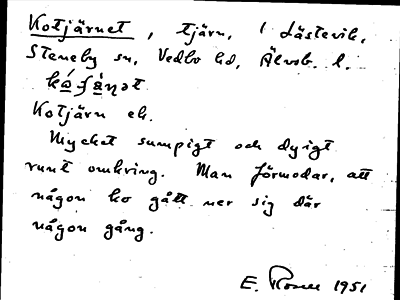 Kotjärnet, tjärn, i Lästevik,
Steneby sn, Vedbo hd, Älvsb. l.
Kotjärn ek.
Mycket sumpigt och dyigt
runt omkring. Man förmodar, att
någon ko gått ner sig där
någon gång.
E. 1951